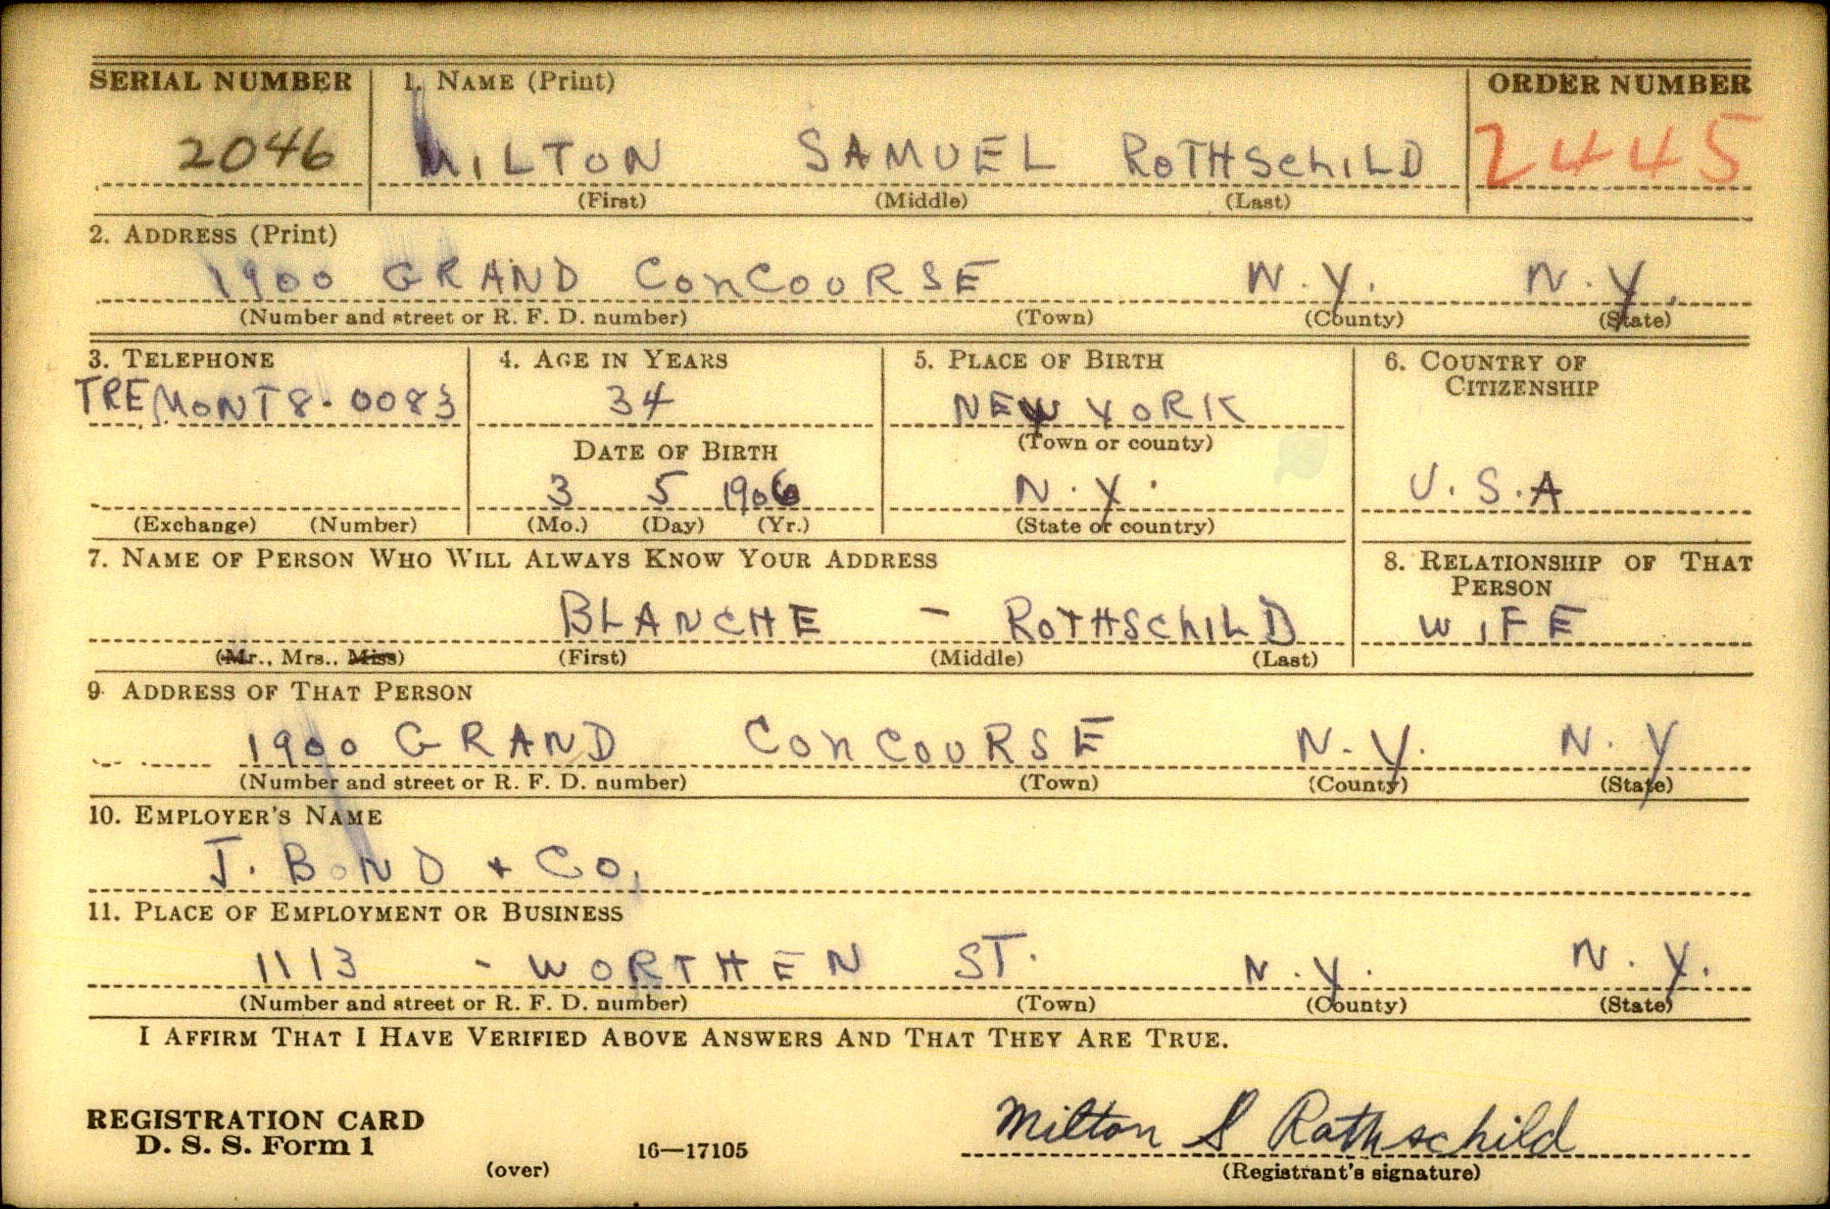 SERIAL NUMBER 1. NAME (Print) ORDER NUMBER
2046 MILTON SAMUEL ROTHSCHILD 2445
(First) (Middle) (Last)
2. ADDRESS (Print)
1900 GRAND CONCOURSE N.Y. N.Y.
(Number and street or R. F. D. number) (Town) (County) (State)
3. TELEPHONE 4. AGE IN YEARS 5. PLACE OF BIRTH 6. COUNTRY OF
CITIZENSHIP
TREMONT 8-0083 34 NEW YORK
(Town or county)
DATE OF BIRTH
3 5 1906 N.Y. U.S.A
(Exchange) (Number) (Mo.) (Day) (Yr.) (State or country)
7. NAME OF PERSON WHO WILL ALWAYS KNOW YOUR ADDRESS 8. RELATIONSHIP OF THAT
PERSON
BLANCHE - ROTHSCHILD WIFE
(Mr., Mrs., Miss) (First) (Middle) (Last)
9. ADDRESS OF THAT PERSON
1900 GRAND CONCOURSE N.Y. N.Y
(Number and street or R. F. D. number) (Town) (County) (State)
10. EMPLOYER'S NAME
J. BOND + CO.
11. PLACE OF EMPLOYMENT OR BUSINESS
1113 - WORTHEN ST. N.Y. N.Y.
(Number and street or R. F. D. number) (Town) (County) (State)
I AFFIRM THAT I HAVE VERIFIED ABOVE ANSWERS AND THAT THEY ARE TRUE.
REGISTRATION CARD
D. S. S. Form 1
(over) 16—17105
Milton S Rothschild
(Registrant's signature)